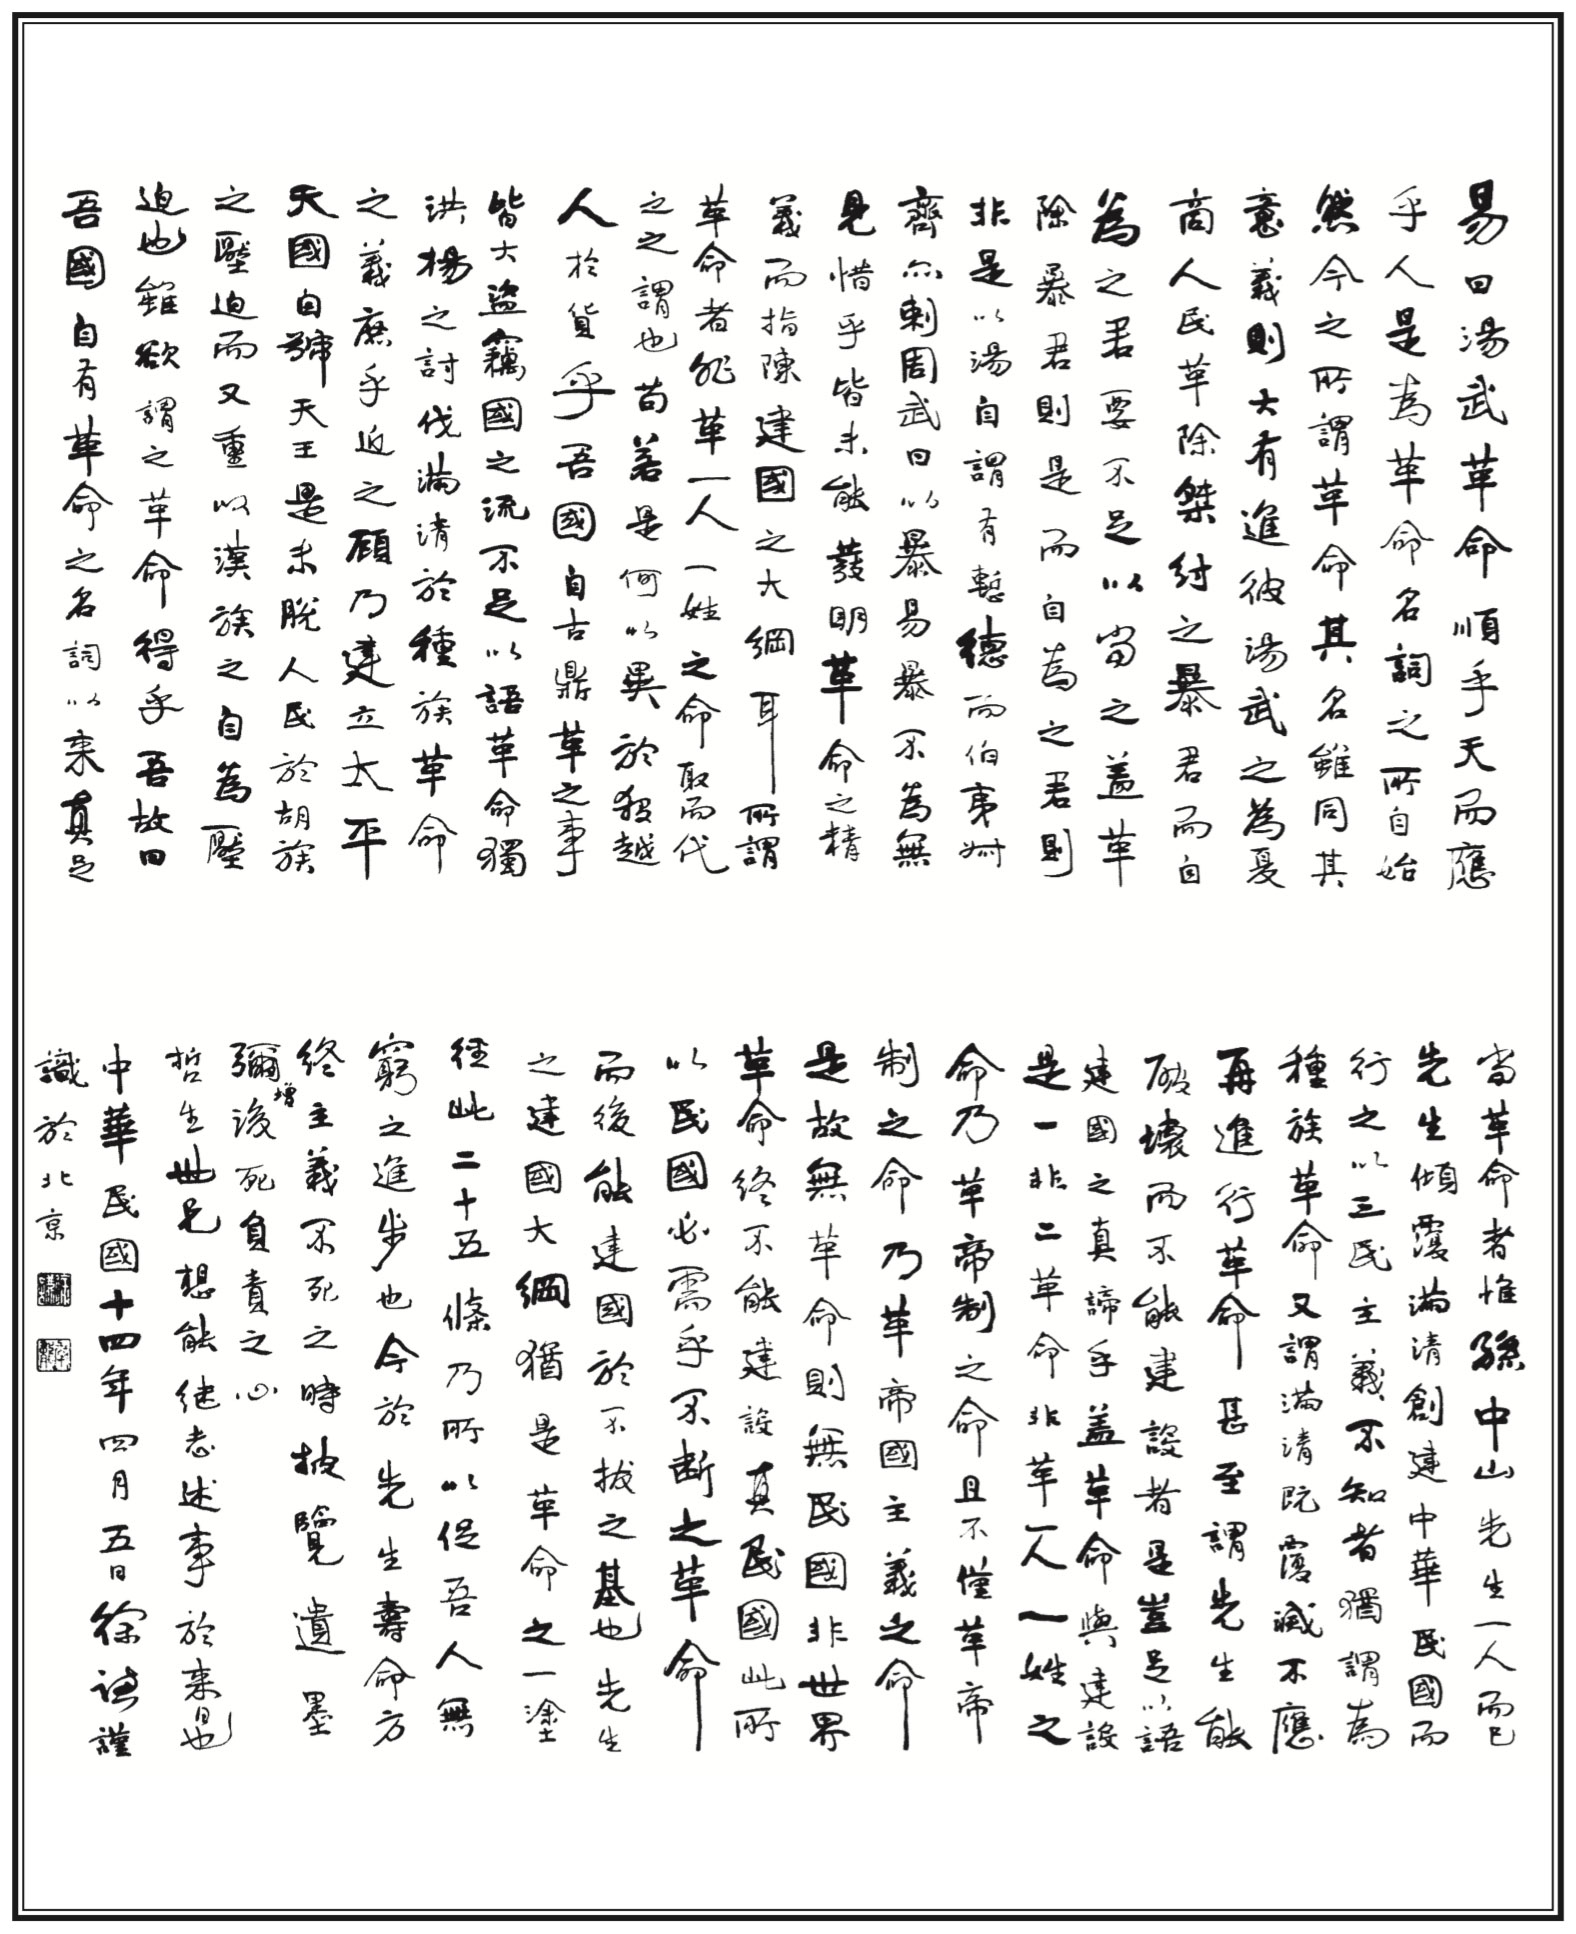 易曰湯武革命順乎天而應
乎人是為革命名詞之所自始
然今之所謂革命其名雖同其
意義則大有進彼湯武之為夏
商人民革除桀紂之暴君而自
為之君要不足以當之蓋革
除暴君則是而自為之君則
非是以湯自謂有慙德而伯夷叔
齊亦刺周武曰以暴易暴不為無
見惜乎皆未能發明革命之精
義而指陳建國之大綱耳所謂
革命者非革一人一姓之命取而代
之之謂也苟若是何以異於殺越
人於貨乎吾國自古鼎革之事
皆大盜竊國之流不足以語革命獨
洪楊之討伐滿清於種族革命
之義庶乎近之顧乃建立太平
天國自號天王是未脫人民於胡族
之壓迫而又重以漢族之自為壓
迫也雖欲謂之革命得乎吾故曰
吾國自有革命之名詞以來真足
當革命者惟孫中山先生一人而已
先生傾覆滿清創建中華民國而
行之以三民主義不知者猶謂為
種族革命又謂滿清既覆滅不應
再進行革命甚至謂先生能
破壞而不能建設者是豈足以語
建國之真諦乎蓋革命與建設
是一非二革命非革一人一姓之
命乃革帝制之命且不僅革帝
制之命乃革帝國主義之命
是故無革命則無民國非世界
革命終不能建設真民國此所
以民國必需乎不斷之革命
而後能建國於不拔之基也先生
之建國大綱猶是革命之一塗
徑此二十五條乃所以促吾人無
窮之進步也今於先生壽命方
終主義不死之時披覽遺墨
彌增後死負責之心
哲生世兄想能繼志述事於來日也
中華民國十四年四月五日徐謙謹
識於北京